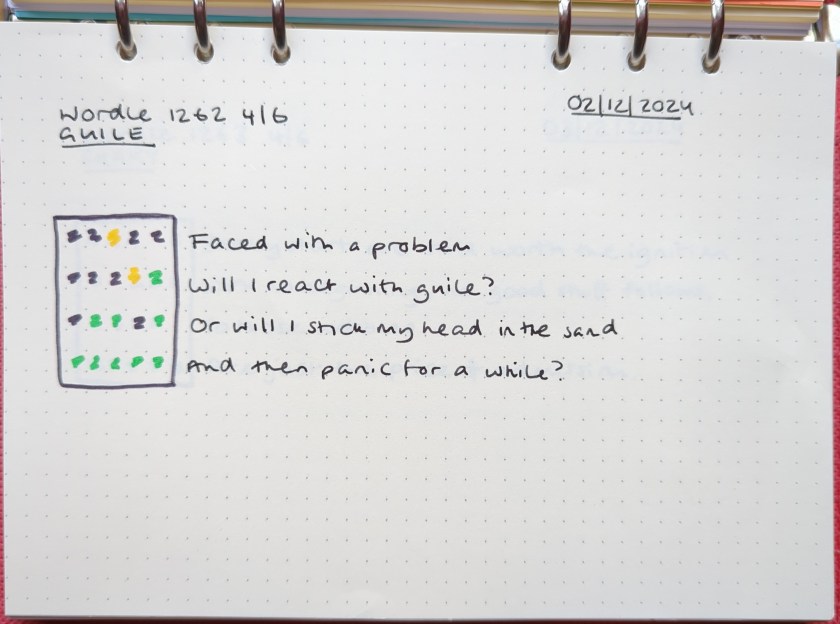 Wordle 1262 4/6
GUILE
02/12/2024
Faced with a problem
Will I react with guile?
Or will I stick my head in the sand
And then panic for a while?